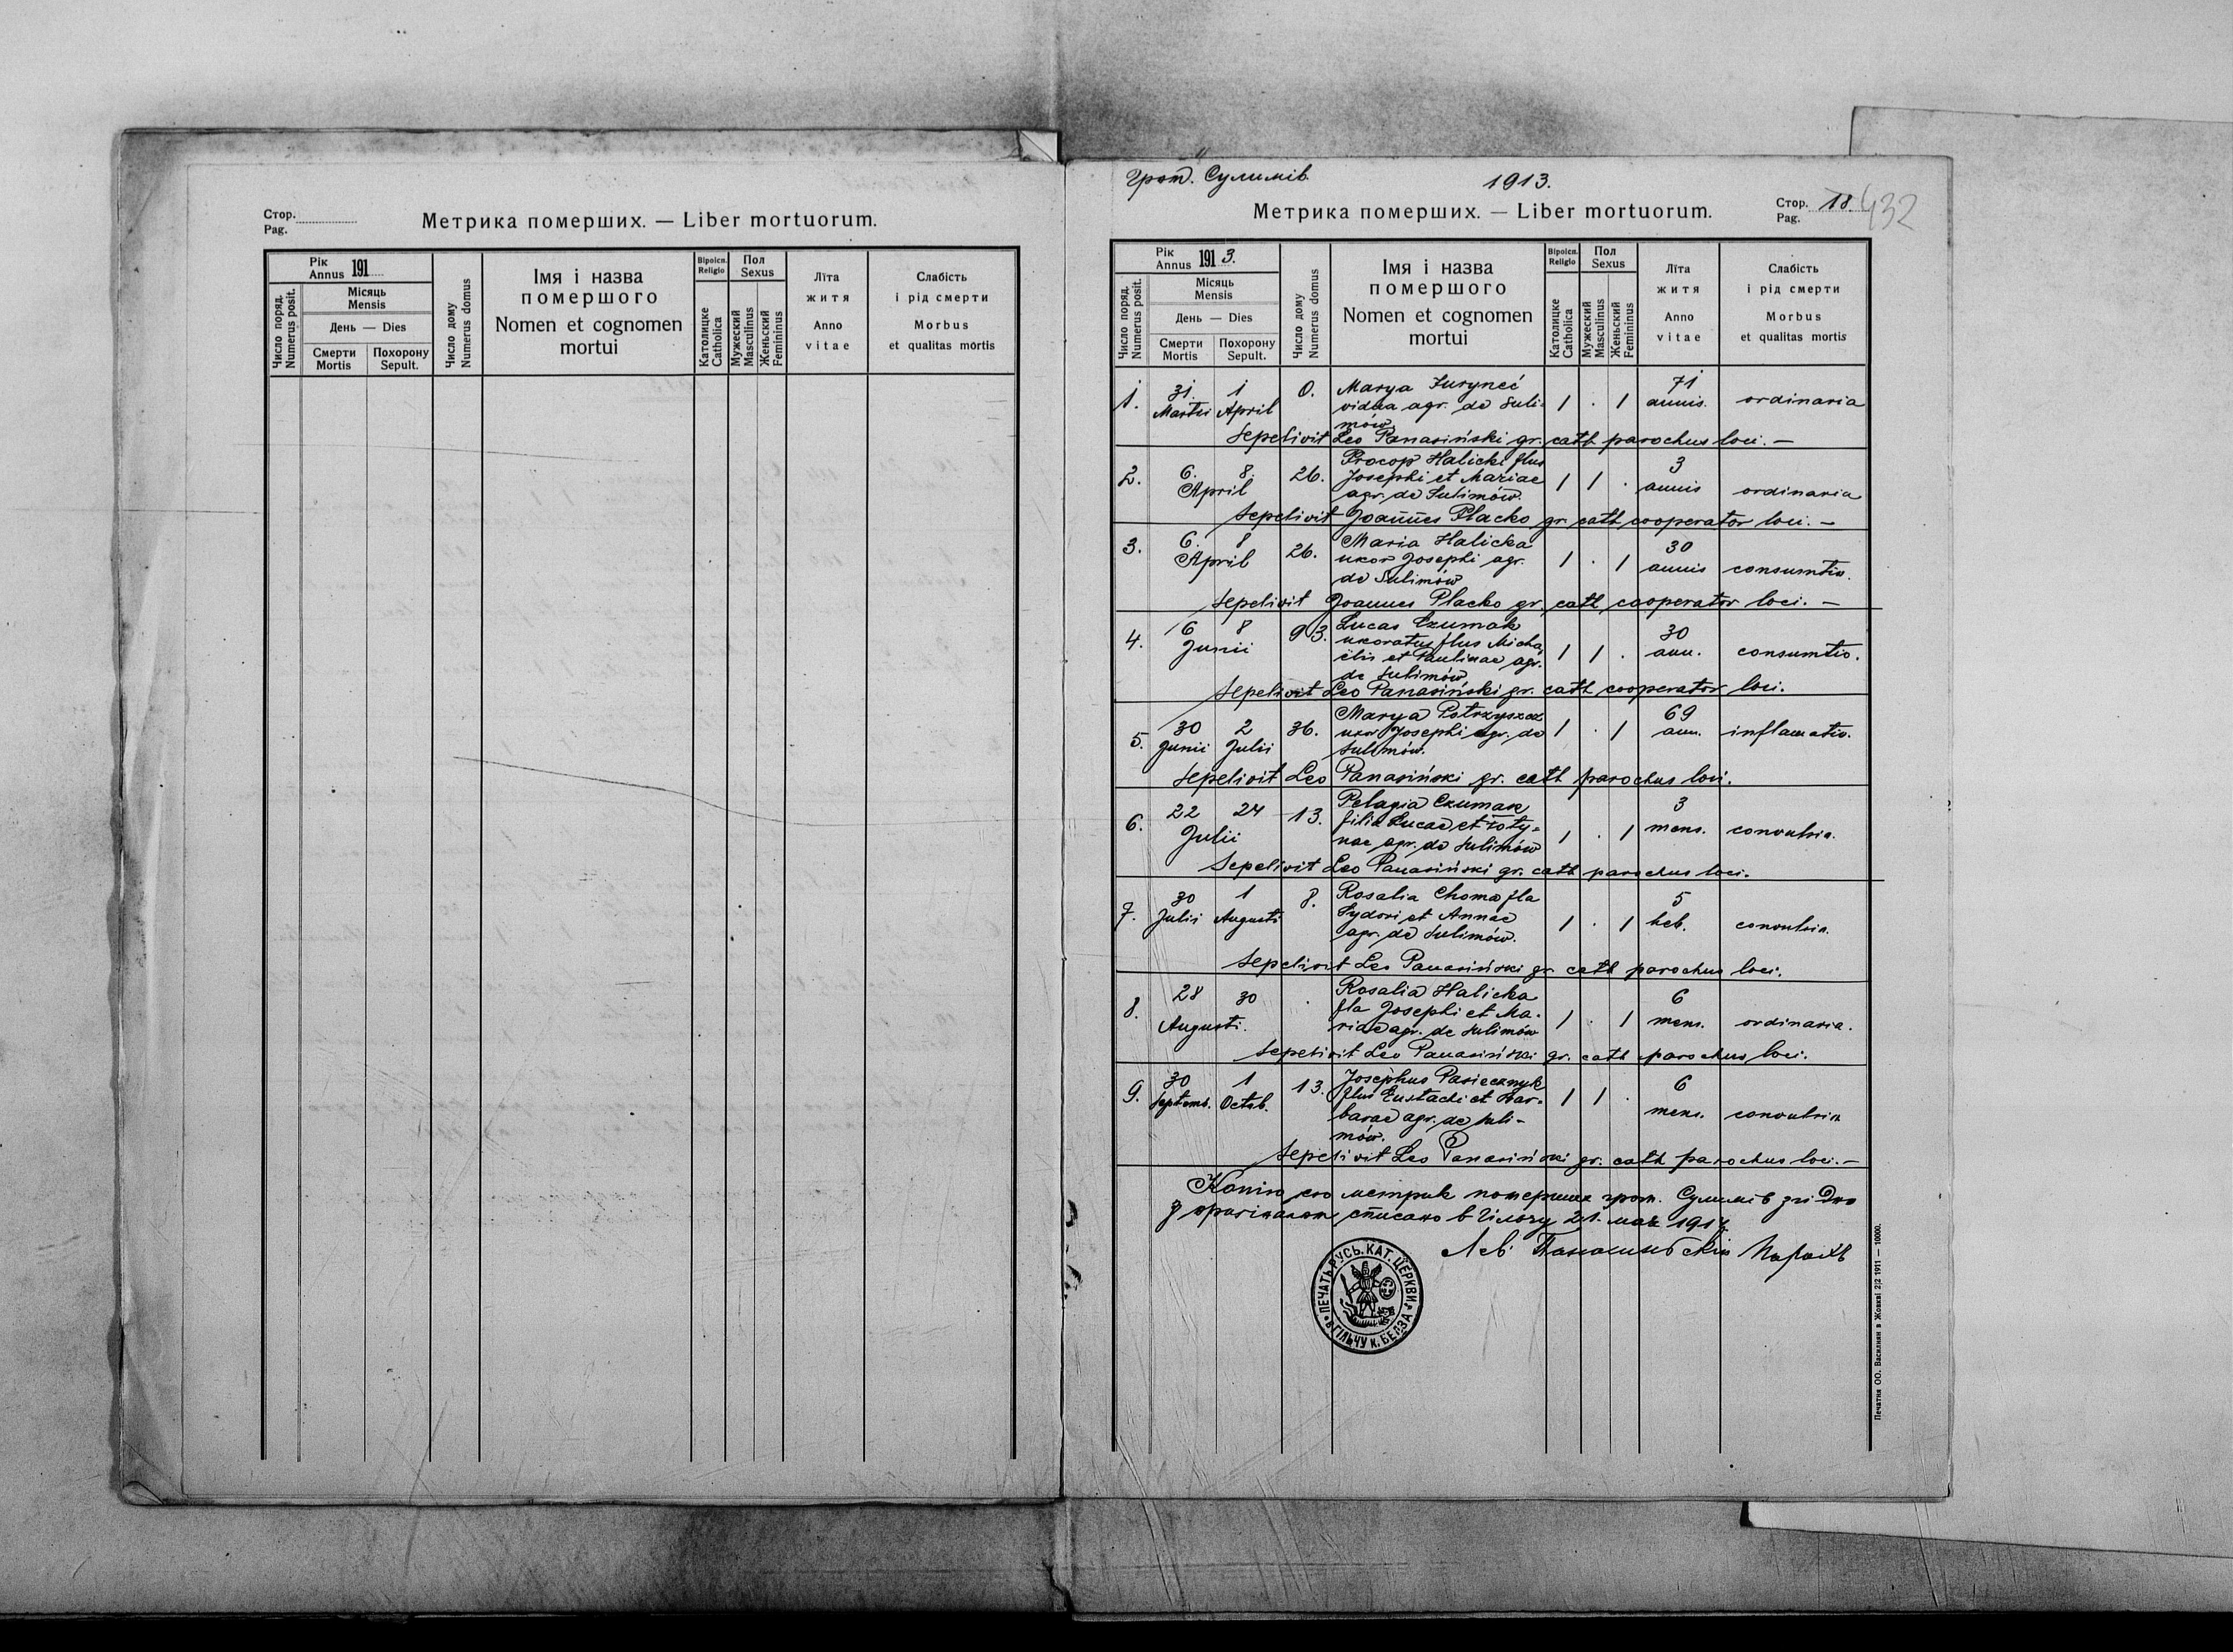 Стор.
Pag.
Метрика померших. — Liber mortuorum.
Рік
Annus 191
Місяць
Mensis
День — Dies
Смерти
Mortis
Похорону
Sepult.
Число поряд.
Numerus posit.
Число дому
Numerus domus
Імя і назва
помершого
Nomen et cognomen
mortui
Віроісп.
Religio
Католицке
Catholica
Пол
Sexus
Мужеский
Masculinus
Женьский
Femininus
Лїта
житя
Anno
vitae
Слабість
і рід смерти
Morbus
et qualitas mortis
Гром. Сулимів.
1913.
Метрика померших. — Liber mortuorum.
Стор.
Pag. 18.
432
Рік
Annus 1913.
Місяць
Mensis
День — Dies
Смерти
Mortis
Похорону
Sepult.
Число поряд.
Numerus posit.
Число дому
Numerus domus
Імя і назва
помершого
Nomen et cognomen
mortui
Віроісп.
Religio
Католицке
Catholica
Пол
Sexus
Мужеский
Masculinus
Женьский
Femininus
Лїта
житя
Anno
vitae
Слабість
і рід смерти
Morbus
et qualitas mortis
1. 31. 1 0. Marya 71
Martii April vidua agr. de Suli- 1 . 1 annis. ordinaria
mów
Sepelivit Leo Panasiński gr. cath parochus loci. —
Procop Halicki flus 3
2. 6. 8. 26. Josephi et Mariae 1 1 . annis ordinaria
April agr. de Sulimów.
Sepelivit Joannes Placko gr. cath cooperator loci. —
3. 6. 8 26. Maria Halicka 30
April uxor Josephi agr. 1 . 1 annis consumtio.
de Sulimów
Sepelivit Joannes Placko gr. cath cooperator loci. —
4. 6 8 93. Lucas Czumak 30
Junii uxoratus flus Micha- 1 1 . ann. consumtio.
ëlis et Paulinae agr.
de Sulimów
Sepelivit Leo Panasiński gr. cath cooperator loci.
Marya Potrzyszcz 69
5. 30 2 36. uxor Josephi agr. de 1 . 1 ann. inflamatio.
Junii Julii Sulimów.
Sepelivit Leo Panasiński gr. cath parochus loci.
6. 22 24 13. Pelagia Czumak 3
Julii filia Lucae et Foty- 1 . 1 mens. convulsia.
nae agr. de Sulimów
Sepelivit Leo Panasiński gr. cath parochus loci.
7. 30 1 8. Rosalia Choma fla 5
Julii Augusti Sydori et Annae 1 . 1 heb. convulsia.
agr. de Sulimów.
Sepelivit Leo Panasiński gr. cath parochus loci.
8. 28 30 . Rosalia Halicka 6
Augusti. fla Josephi et Ma- 1 . 1 mens. ordinaria.
riae agr. de Sulimów
Sepelivit Leo Panasiński gr. cath parochus loci.
9. 30 1 13. Josephus Pasiecznyk 6
Septemb. Octob. flus Eustachi et Bar- 1 1 . mens. convulsia
barae agr. de Suli-
mów.
Sepelivit Leo Panasiński gr. cath parochus loci. —
Копію сю метрик померших гром. Сулимів
з оригіналом списано в Гільчу 21. мая
Лев Панасиньскій парох
ПЕЧАТЬ РУСЬ. КАТ. ЦЕРКВИ
В ГІЛЬЧУ К. БЕЛЗА
Печатня ОО. Василиян в Жовкві 2|2 1911 — 10000.